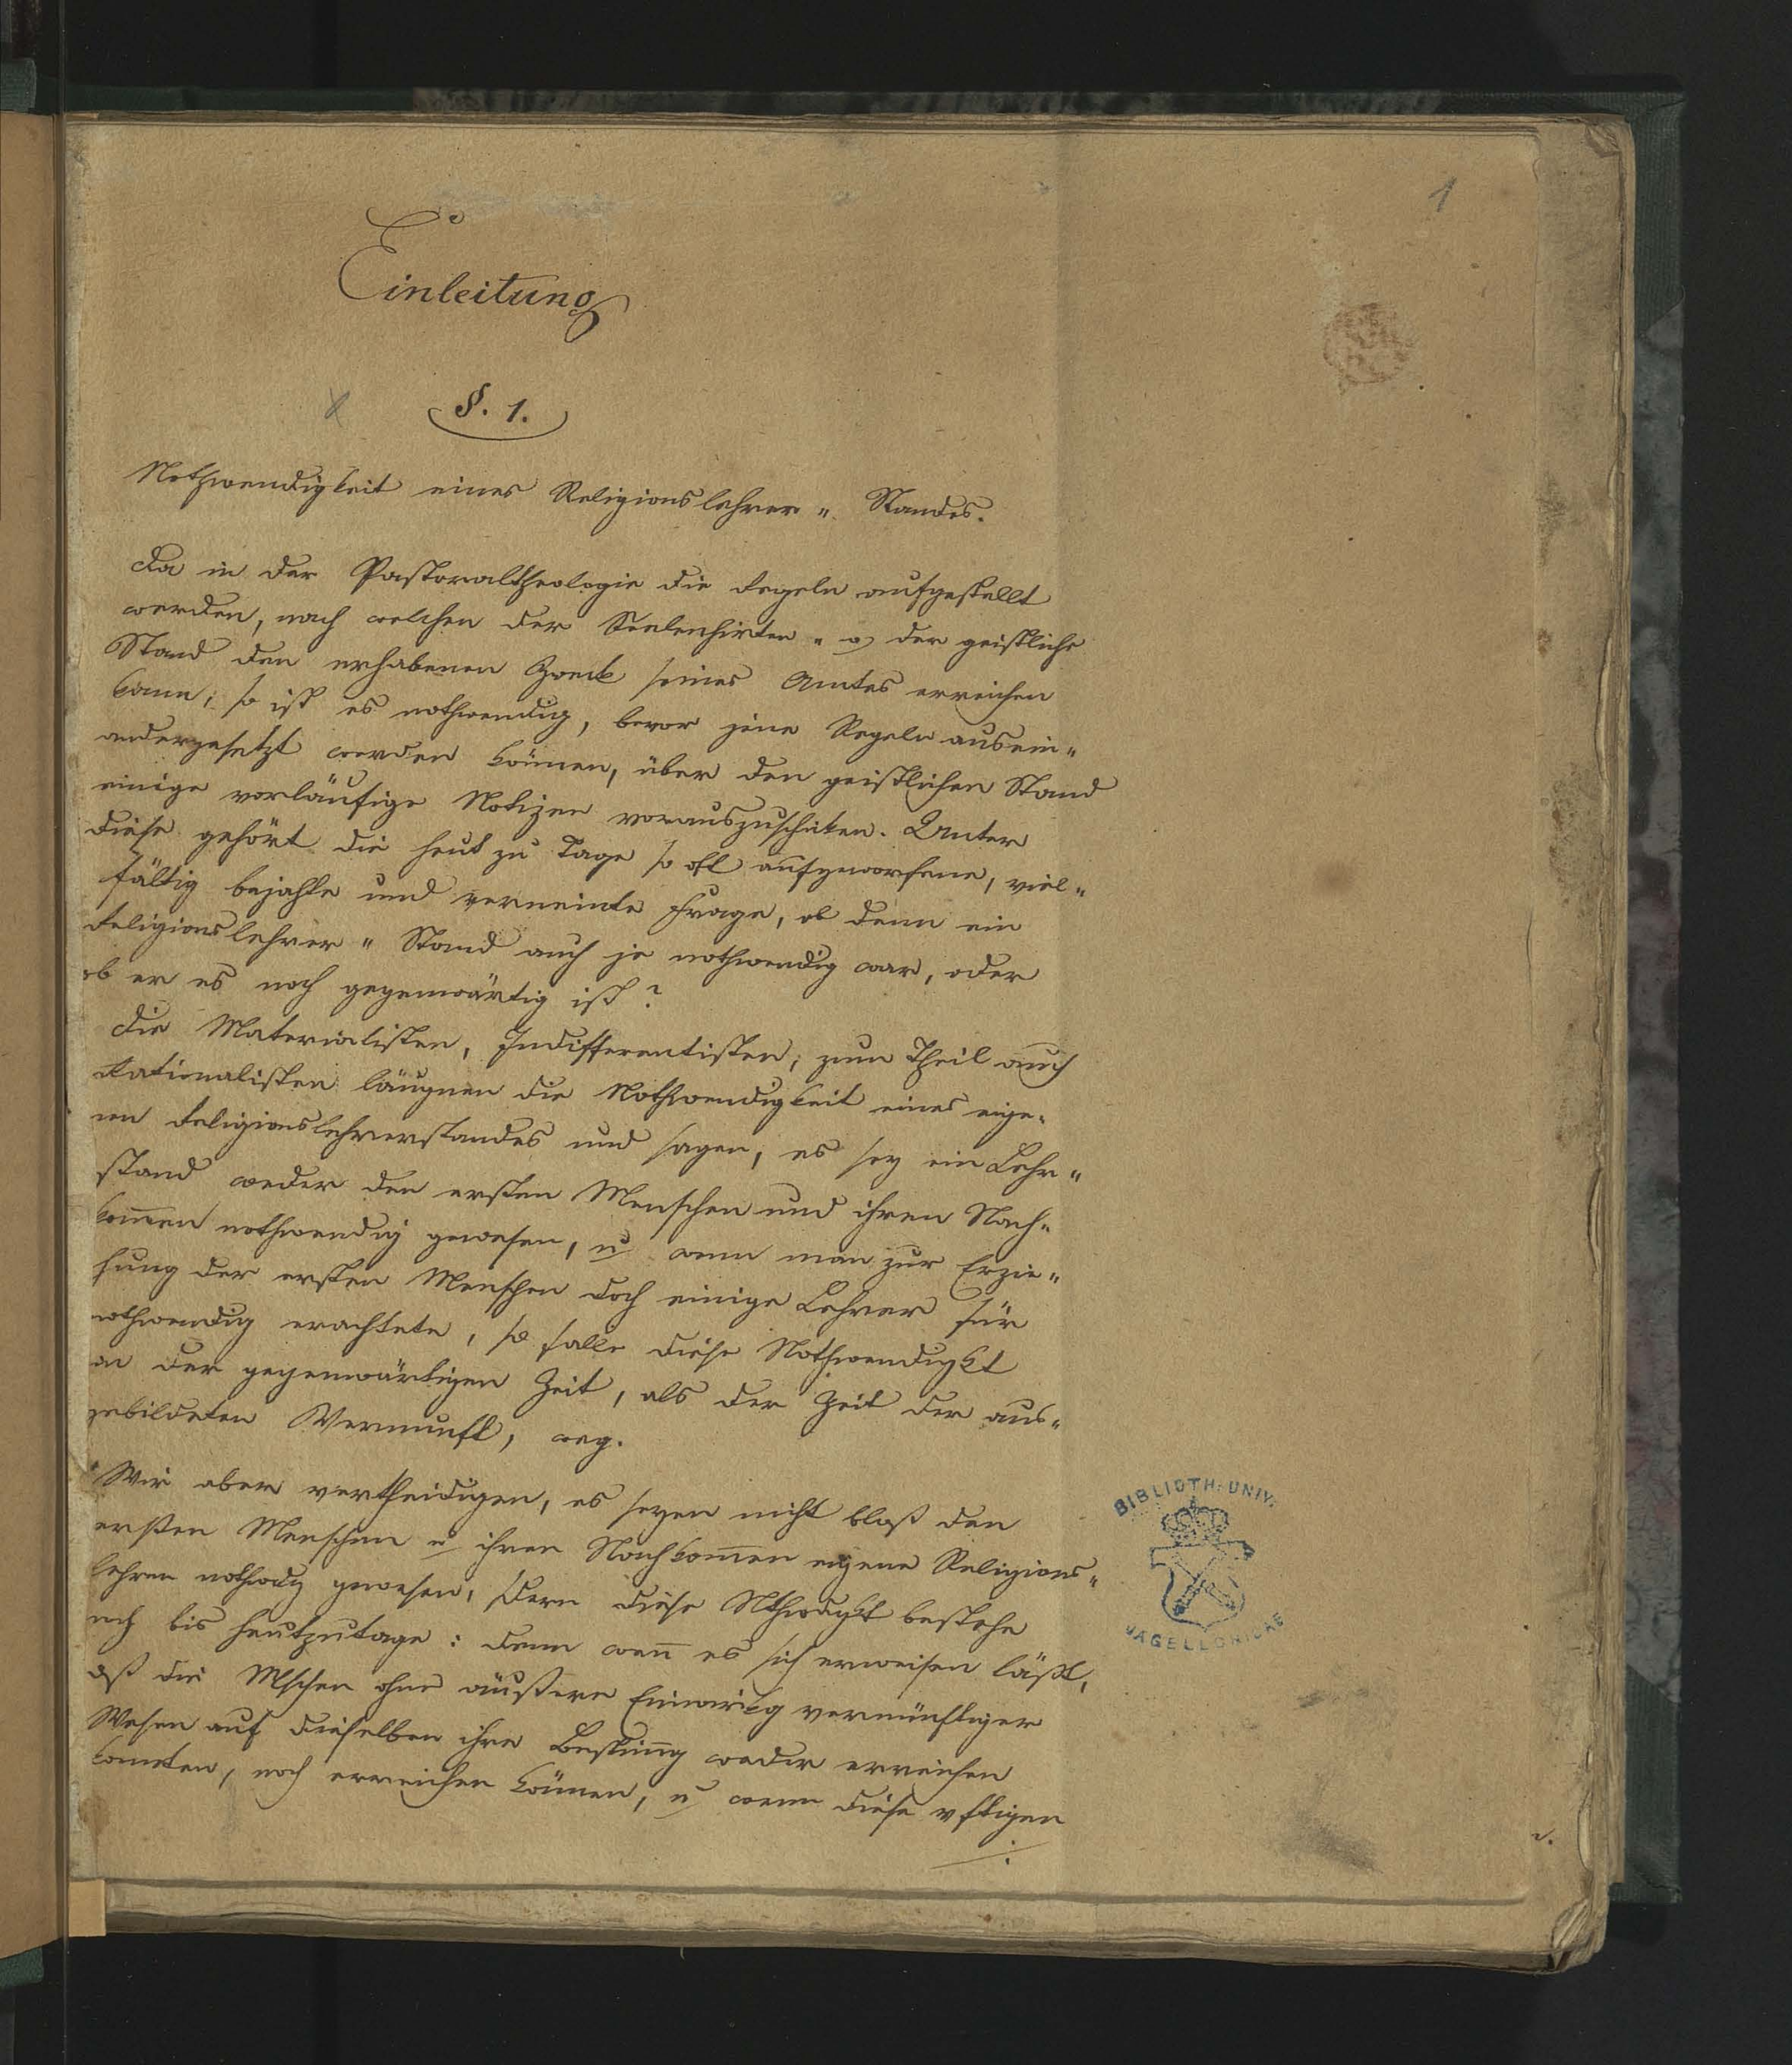 1
Einleitung
§. 1.
Nothwendigkeit eines Religionslehrer „ Standes.
Da in der Pastoraltheologie die Regeln aufgestellt
werden, nach welchen der Seelenhirten „ der geistliche
Stand den erhabenen Zweck seines Amtes erreichen
kann; so ist es nothwendig, bevor jene Regeln ausein„
andergesetzt werden können, über den geistlichen Stand
einige vorläufige Notizen vorauszuschicken. Unter
diese gehört die heut zu Tage so oft aufgeworfene, viel„
fältig bejahte und verneinte Frage, ob denn ein
Religionslehrer „ Stand auch je nothwendig war, oder
ob er es noch gegenwärtig ist?
Die Materialisten, Indifferentisten, zum Theil auch
Rationalisten läugnen die Nothwendigkeit eines eige„
nen Religionslehrerstandes und sagen, es sey ein Lehr„
stand weder den ersten Menschen und ihren Nach„
kommen nothwendig gewesen, u wenn man zur Erzie„
hung der ersten Menschen doch einige Lehrer für
nothwendig erachtete, so falle diese Nothwendigkt
in der gegenwärtigen Zeit, als der Zeit der aus„
gebildeten Vernunft, weg.
Wir aber vertheidigen, es seyen nicht bloß den
ersten Menschen u ihren Nachkom̅en eigene Religions„
lehrer nothwdg gewesen, sdern diese Nthwdgkt bestehe
nch bis heutzutage: denn wen̅ es sich erweisen läßt,
dß die Mschen ohne äußere Einwirkg vernünftiger
Wesen auf dieselben ihre Bestim̅g weder erreichen
konnten, noch erreichen können, u wenn diese vftigen
./.
BIBLIOTH. UNIV.
JAGELLONICAE